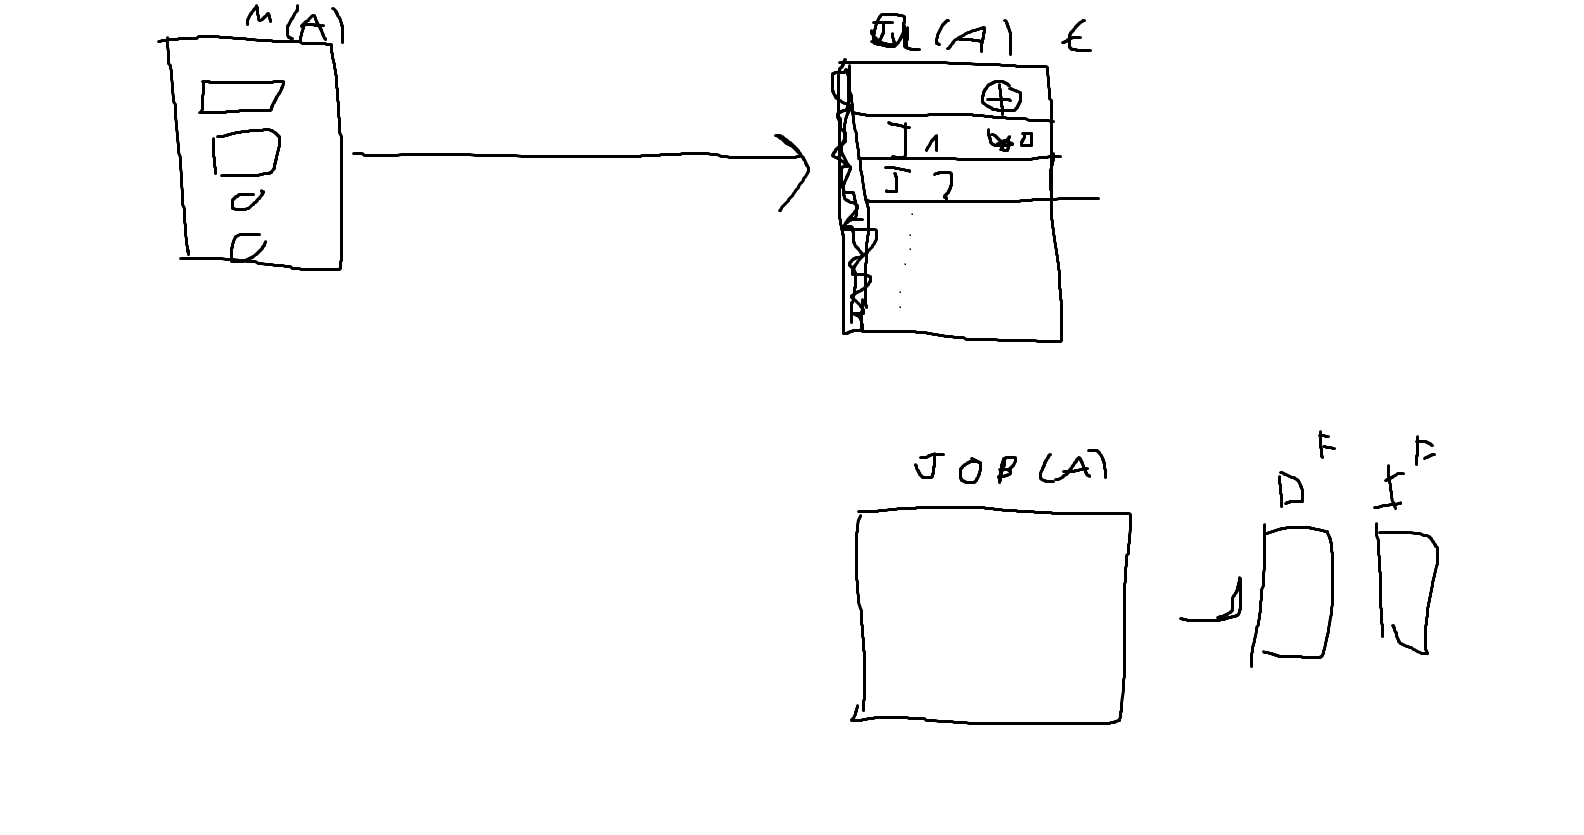 M(A)
JL(A) E
J1
J2
JOB(A)
D F
I F